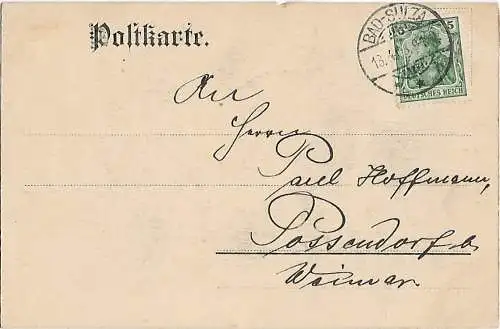 Postkarte.
BAD-SULZA
5
DEUTSCHES REICH
An
Herrn
Paul Hoffmann,
Possendorf b
Weimar.